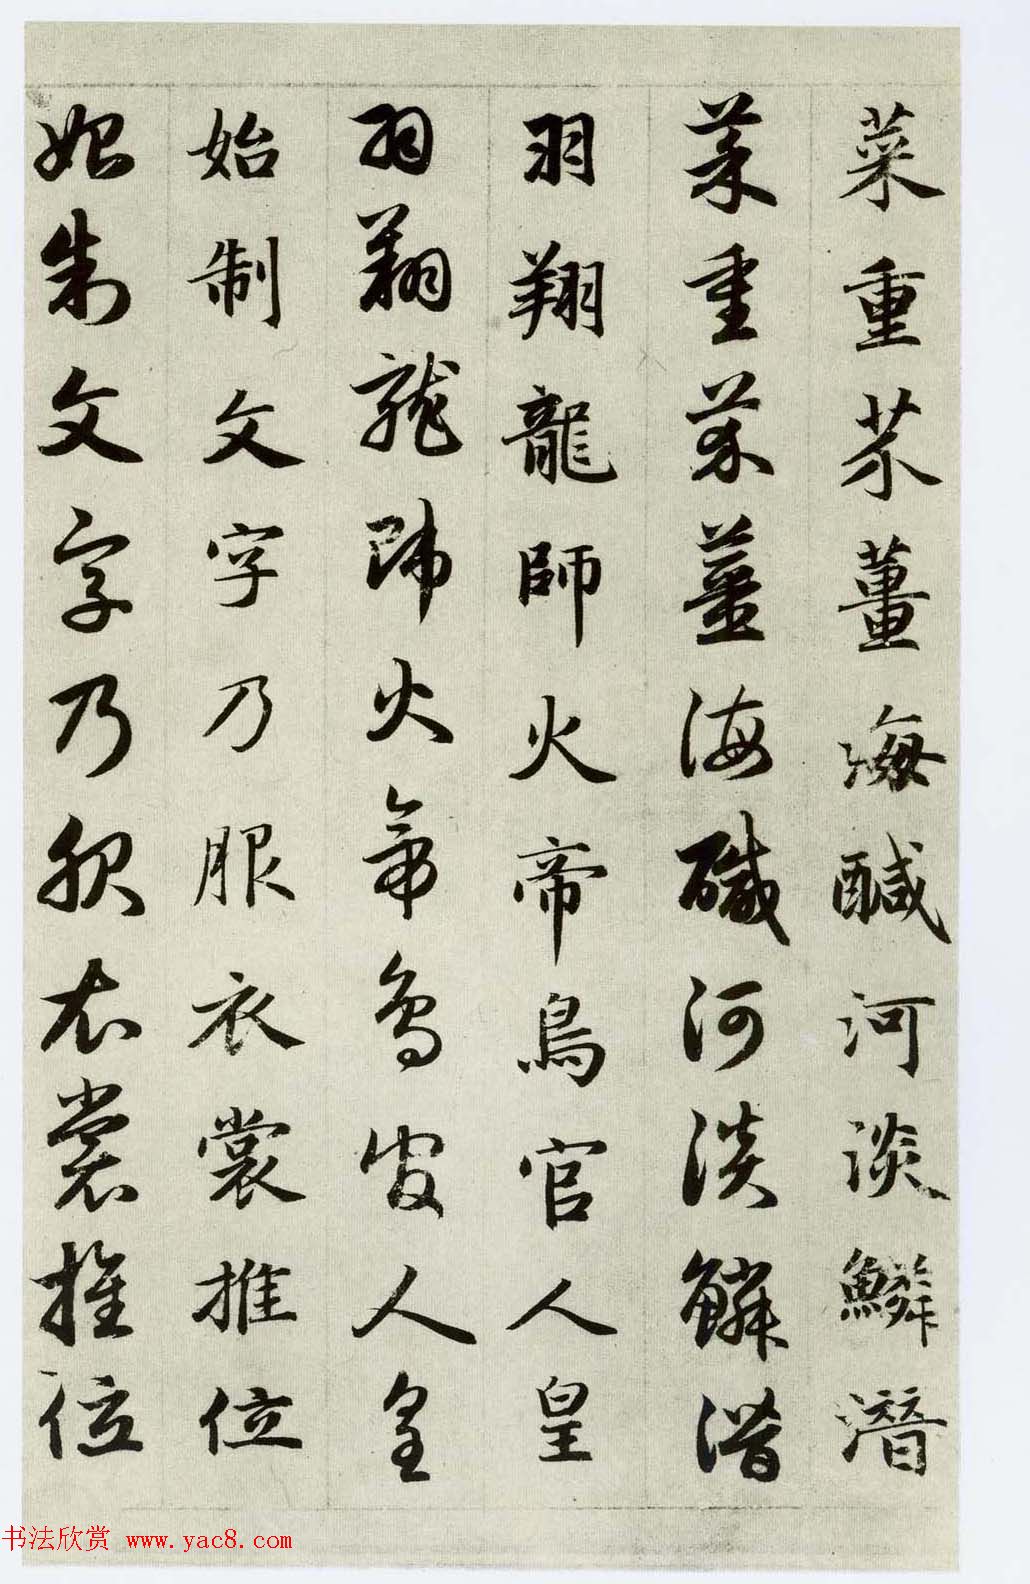 菜重芥薑海鹹河淡鱗潛
菜重芥薑海醎河淡鱗潛
羽翔龍師火帝鳥官人皇
羽翔龍師火帝鳥官人皇
始制文字乃服衣裳推位
始制文字乃服衣裳推位
书法欣赏 www.yac8.com